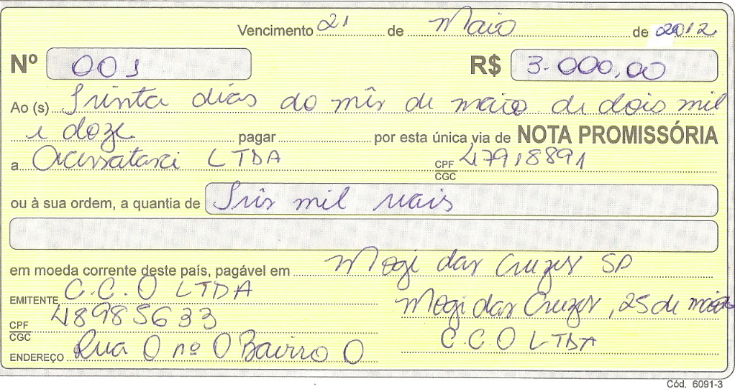 Vencimento 21 de Maio de 2012
Nº 001 R$ 3.000,00
Ao (s) Trinta dias do mês de maio de dois mil
e doze pagar por esta única via de NOTA PROMISSÓRIA
a LTDA CPF CGC 47918891
ou à sua ordem, a quantia de Três mil reais
em moeda corrente deste país, pagável em Mogi das Cruzes SP
EMITENTE C.C.O LTDA Mogi das Cruzes, 25 de maio
CPF CGC 48985633 C.C.O LTDA
ENDEREÇO Rua O nº O Bairro O
Cód. 6091-3